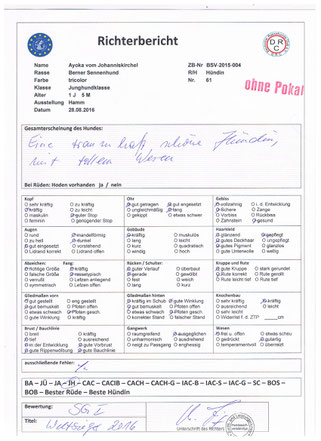 DRC
Richterbericht
Name Ayoka vom Johanniskirchel ZB-Nr BSV-2015-004
Rasse Berner Sennenhund R/H Hündin
Farbe tricolor Nr. 61
Klasse Junghundklasse
Alter 1 J 5 M
Ausstellung Hamm
Datum 28.08.2016
ohne Pokal
Gesamterscheinung des Hundes:
Eine traumhaft schöne Hündin,
mit tollem Wesen
Bei Rüden: Hoden vorhanden ja / nein
Kopf Ohr Gebiss
sehr kräftig zu kurz gut getragen gut angesetzt vollzahnig i. d. Entwicklung
kräftig zu leicht ungleichmäßig lang Schere Zange
maskulin guter Stop gekippt etwas schwer Vorbiss Rückbiss
feminin genügender Stop Zahnstein gesund
Augen Gebäude Haarkleid
rund mandelförmig kräftig muskulös glänzend gepflegt
zu hell dunkel lang leicht gutes Deckhaar ungepflegt
vorstehend kurz quadratisch gutes Pigment glanzlos
Lidrand korrekt Lidrand offen windig hoch gute Unterwolle wenig Unterwolle
Abzeichen: Fang Rücken / Schulter: Kruppe und Rute
richtige Größe lang guter Verlauf überbaut gute Kruppe stark gerundet
falsche Größe rassetypisch gerade gewölbt Rute korrekt Rute gerollt
verrußt Lefzen anliegend fest weich Rute leicht fallend
symmetrisch Lefzen offen lang kurz gute Rutenhaltung
Gliedmaßen vorn Gliedmaßen hinten Knochenbau:
gut gestellt eng gestellt kräftig im Schub gute Winkelung kräftig mittel
gut bemuskelt Pfoten offen gut bemuskelt Pfoten offen ausreichend leicht
etwas schwach Pfoten gesch. etwas schwach Pfoten gesch. sehr kräftig
gute Winkelung korrekter Stand falscher Stand Widerrist f. 3 ZTP ____cm
Brust / Bauchlinie Gangwerk Wesen
breit kräftig raumgreifend ausgeglichen frei u. offen etwas scheu
tief gute Vorbrust ausreichend schwungvoll gedrückt gutartig
in der Entwicklung unharmonisch temperamentvoll übermütig
gute Rippenwölbung gute Bauchlinie neigt zu Passgang enghessig
ausschließende Fehler:
BA – JÜ – JA – JH – CAC – CACIB – CACH – CACH-G – IAC-B – IAC-S – IAC-G – SC – BOS –
BOB – Bester Rüde – Beste Hündin
Bewertung: SG I
Titel: Weltsieger 2016
Unterschrift des Richters